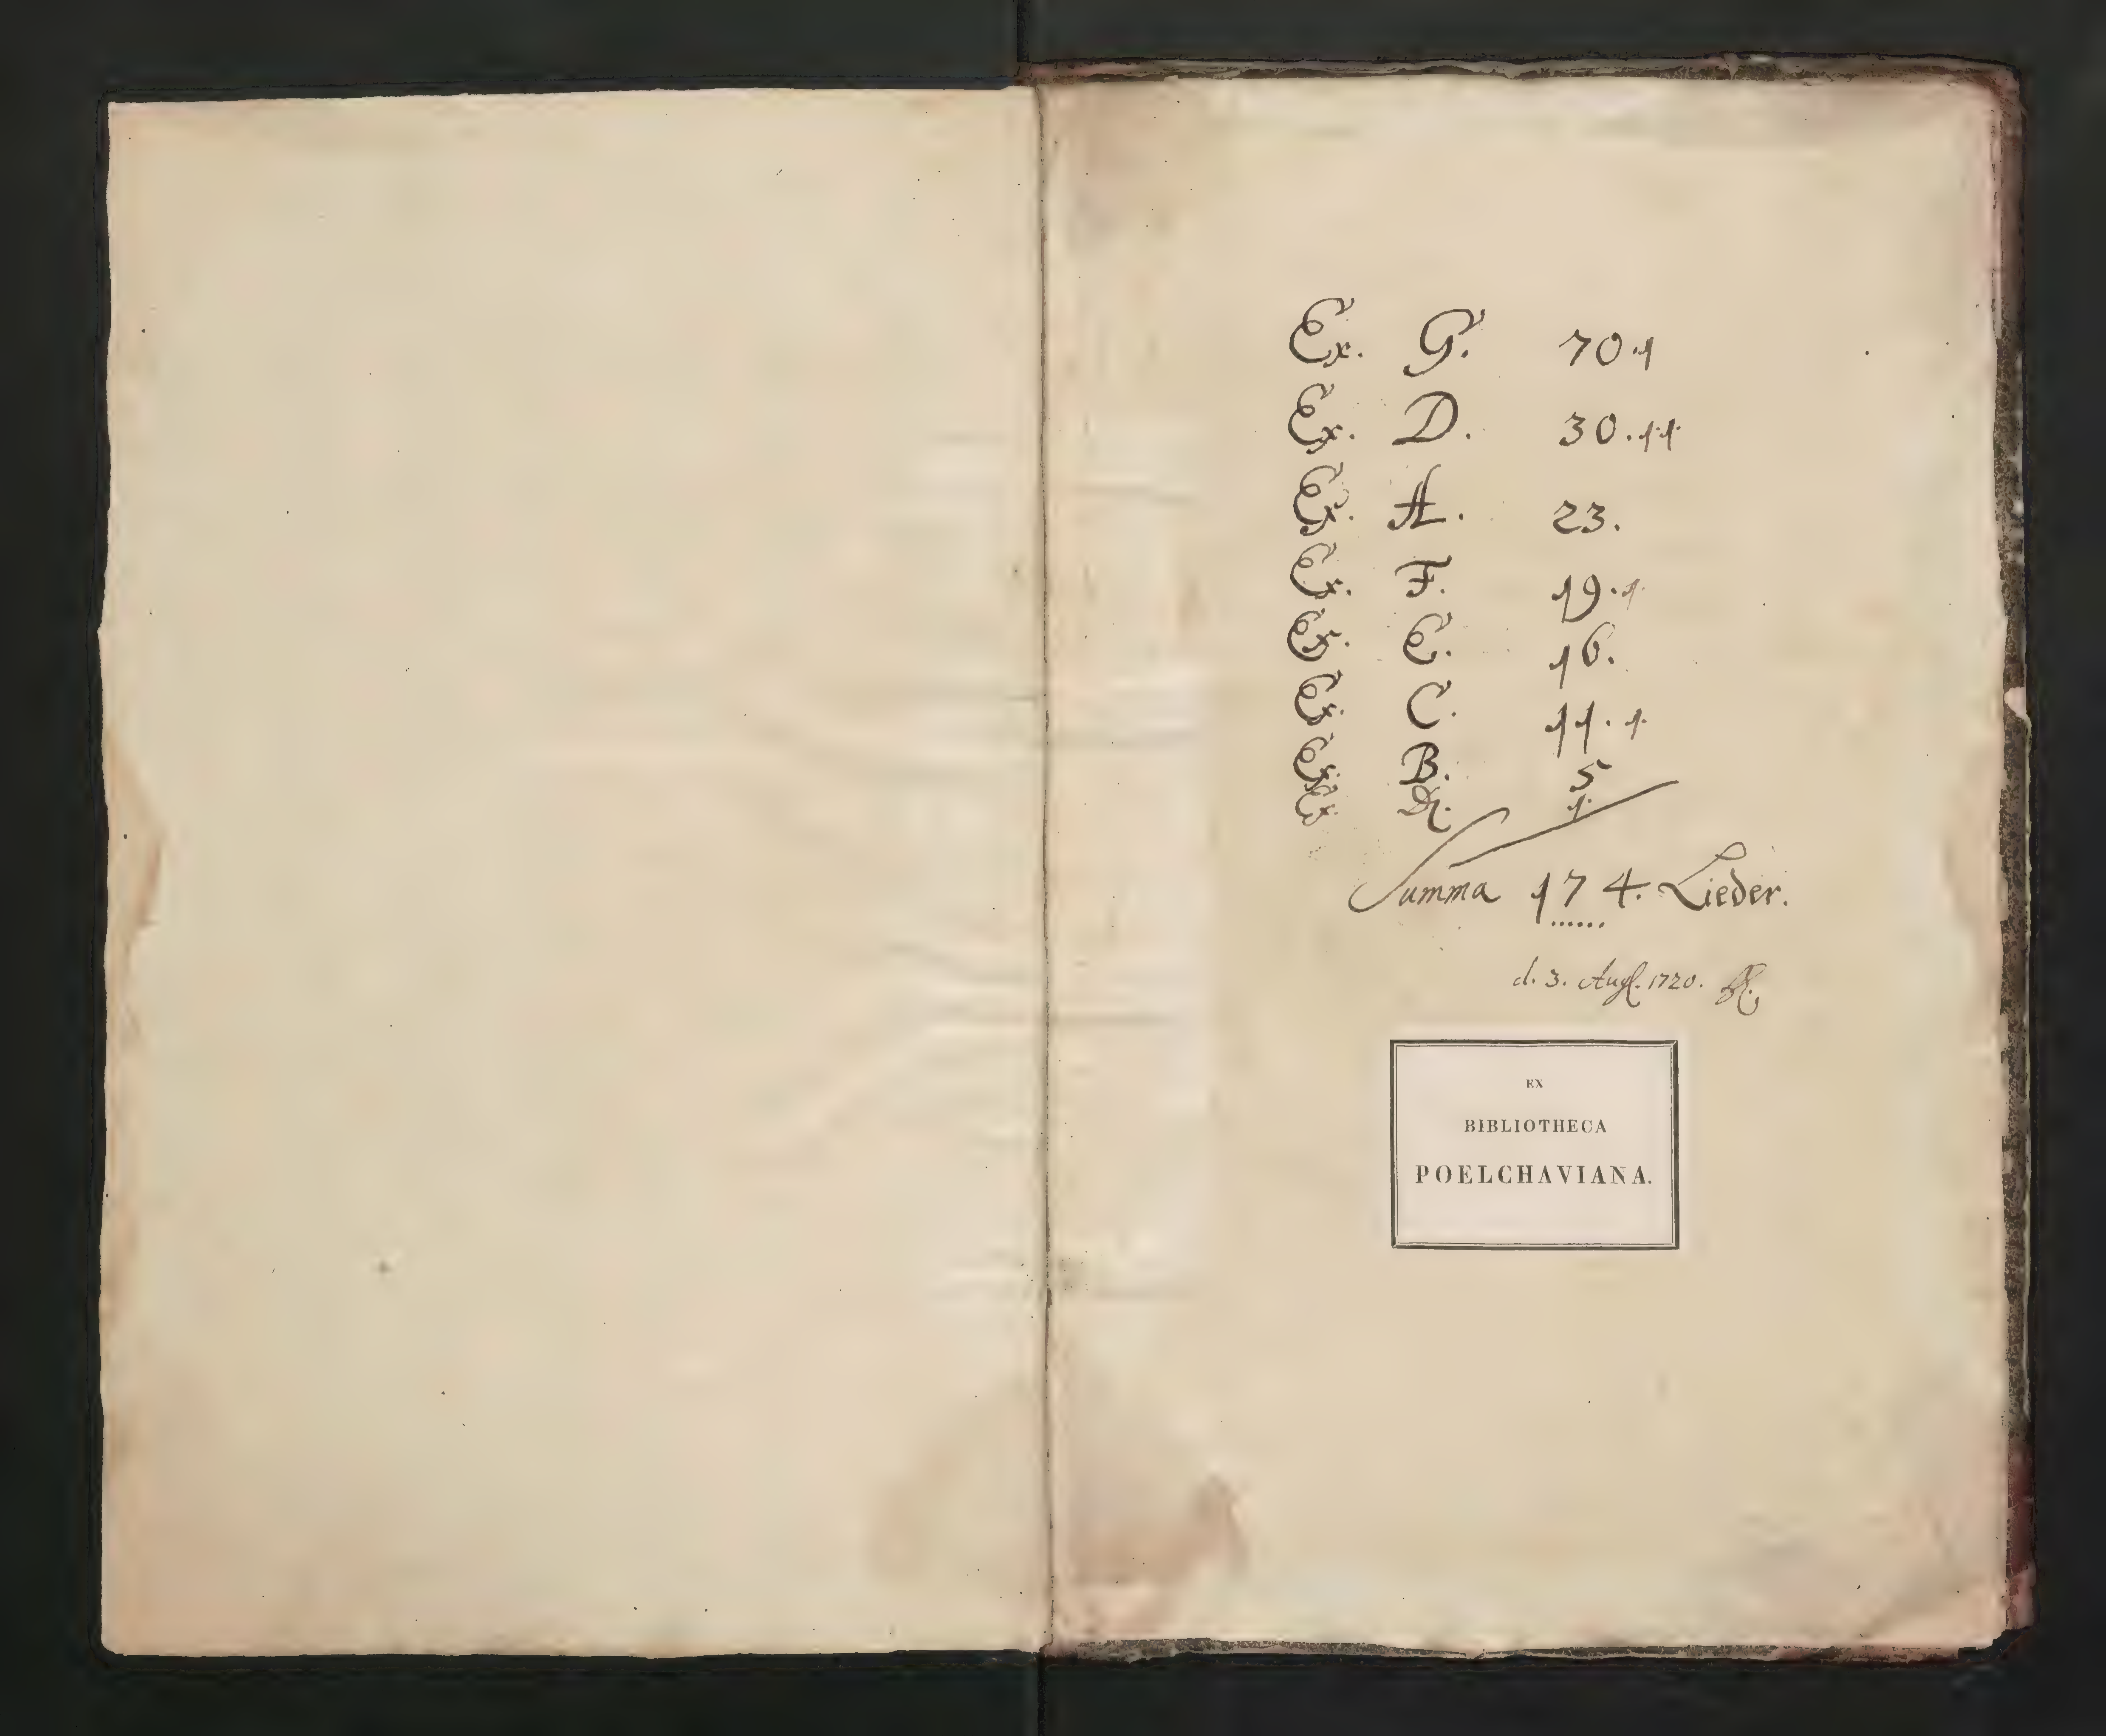 Ex. G. 70.1
Ex. D. 30.11.
Ex. A. 23.
Ex. F. 19.1.
Ex. E. 16.
Ex. C. 11. 1.
Ex. B. 5
Ex. 1.
Summa 174. Lieder.
d. 3. Aug. 1720.
EX
BIBLIOTHECA
POELCHAVIANA.